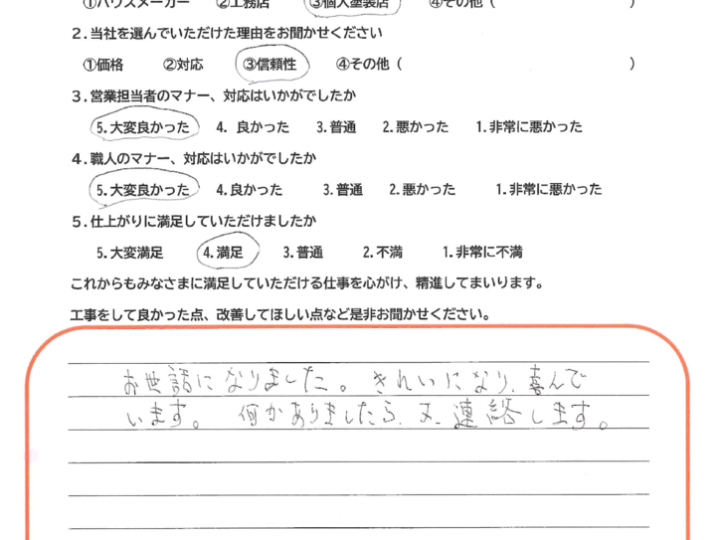 ①ハウスメーカー ②工務店 ③個人塗装店 ④その他（ ）
２.当社を選んでいただけた理由をお聞かせください
①価格 ②対応 ③信頼性 ④その他（ ）
３.営業担当者のマナー、対応はいかがでしたか
5.大変良かった 4. 良かった 3.普通 2.悪かった 1.非常に悪かった
４.職人のマナー、対応はいかがでしたか
5.大変良かった 4.良かった 3.普通 2.悪かった 1.非常に悪かった
５.仕上がりに満足していただけましたか
5.大変満足 4.満足 3.普通 2.不満 1.非常に不満
これからもみなさまに満足していただける仕事を心がけ、精進してまいります。
工事をして良かった点、改善してほしい点など是非お聞かせください。
お世話になりました。きれいになり、喜んで
います。何かありましたら、又、連絡します。